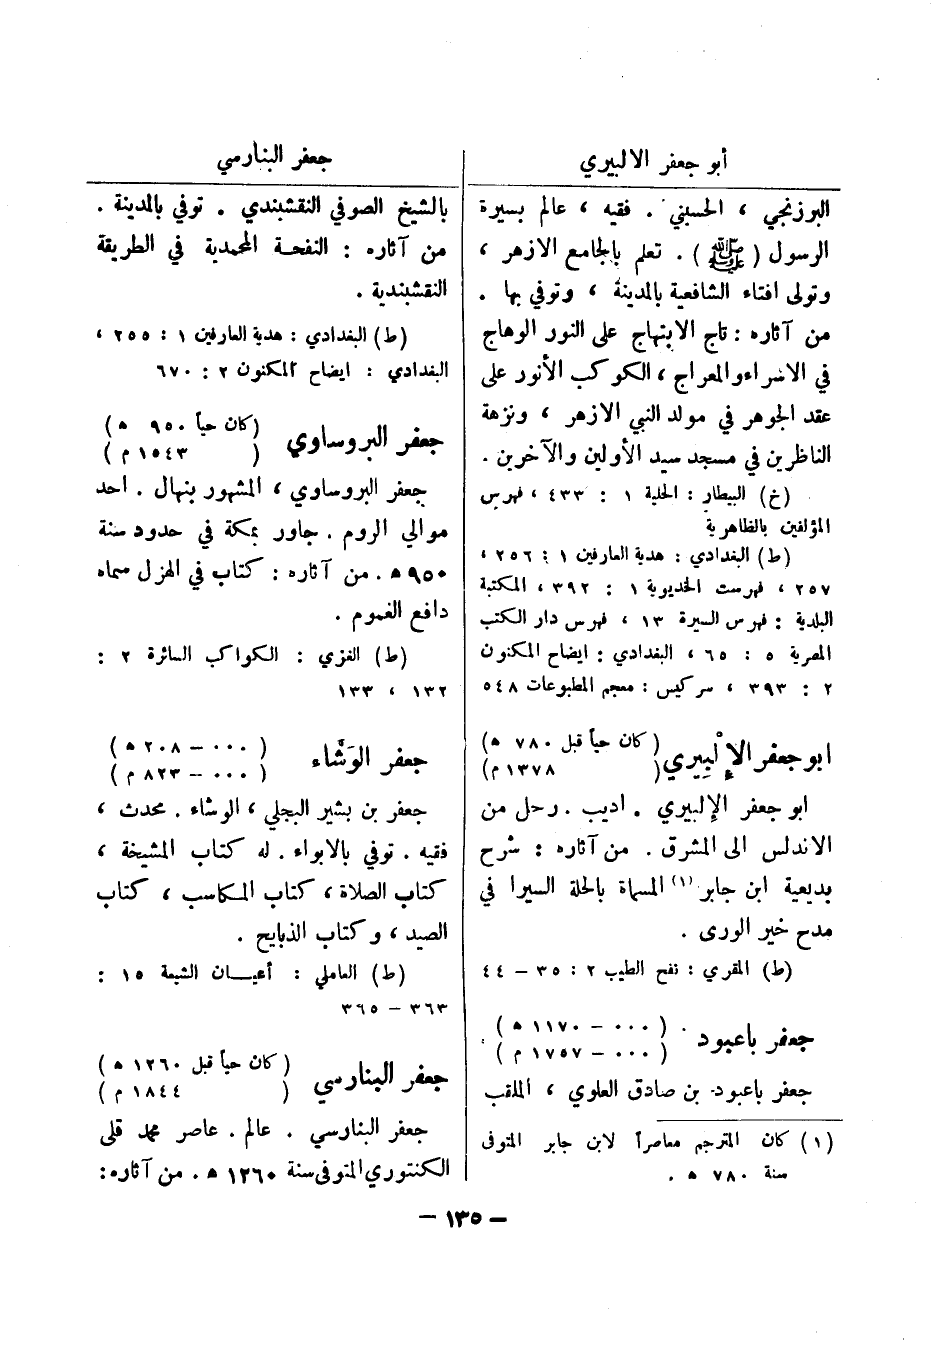 أبو جعفر الالبيري
البرزنجي ، الحسيني . فقيه ، عالم بسيرة
الرسول ( ﷺ ) . تعلم بالجامع الازهر ،
وتولى افتاء الشافعية بالمدينة ، وتوفي بها .
من آثاره : تاج الابتهاج على النور الوهاج
في الاسراء والمعراج ، الكوكب الأنور على
عقد الجوهر في مولد النبي الازهر ، ونزهة
الناظرين في مسجد سيد الأولين والآخرين .
(خ) البيطار : الحلية ١ : ٤٣٣ ، فهرس
المؤلفين بالظاهرية
(ط) البغدادي : هدية العارفين ١ : ٢٥٦ ،
٢٥٧ ، فهرست الخديوية ١ : ٣٩٢ ، المكتبة
البلدية : فهرس السيرة ١٣ ، فهرس دار الكتب
المصرية ٥ : ٦٥ ، البغدادي : ايضاح المكنون
٢ : ٣٩٣ ، سركيس : معجم المطبوعات ٥٤٨
ابو جعفر الإلْبِيري ( كان حياً قبل ٧٨٠ ه )
( ١٣٧٨ م )
ابو جعفر الإلبيري . اديب . رحل من
الاندلس الى المشرق . من آثاره : شرح
بديعية ابن جابر (١) المسماة بالحلة السيرا في
مدح خير الورى .
(ط) المقري : نفح الطيب ٢ : ٣٥ – ٤٤
جعفر باعبود ( ٠٠٠ – ١١٧٠ ه )
( ٠٠٠ – ١٧٥٧ م )
جعفر باعبود بن صادق العلوي ، الملقب
(١) كان المترجم معاصراً لابن جابر المتوفى
سنة ٧٨٠ ه .
جعفر البنارسي
بالشيخ الصوفي النقشبندي . توفي بالمدينة .
من آثاره : النفحة المحمدية في الطريقة
النقشبندية .
(ط) البغدادي : هدية العارفين ١ : ٢٥٥ ،
البغدادي : ايضاح المكنون ٢ : ٦٧٠
جعفر البروساوي ( كان حياً ٩٥٠ ه )
( ١٥٤٣ م )
جعفر البروساوي ، المشهور بنهال . احد
موالي الروم . جاور بمكة في حدود سنة
٩٥٠ ه . من آثاره : كتاب في الهزل سماه
دافع الغموم .
(ط) الغزي : الكواكب السائرة ٢ :
١٣٢ ، ١٣٣
جعفر الوَشَّاء ( ٠٠٠ – ٢٠٨ ه )
( ٠٠٠ – ٨٢٣ م )
جعفر بن بشير البجلي ، الوشاء . محدث ،
فقيه . توفي بالابواء . له كتاب المشيخة ،
كتاب الصلاة ، كتاب المكاسب ، كتاب
الصيد ، وكتاب الذبايح .
(ط) العاملي : أعيان الشيعة ١٥ :
٣٦٣ – ٣٦٥
جعفر البنارسي ( كان حياً قبل ١٢٦٠ ه )
( ١٨٤٤ م )
جعفر البنارسي . عالم . عاصر محمد قلى
الكنتوري المتوفى سنة ١٢٦٠ ه . من آثاره :
– ١٣٥ –